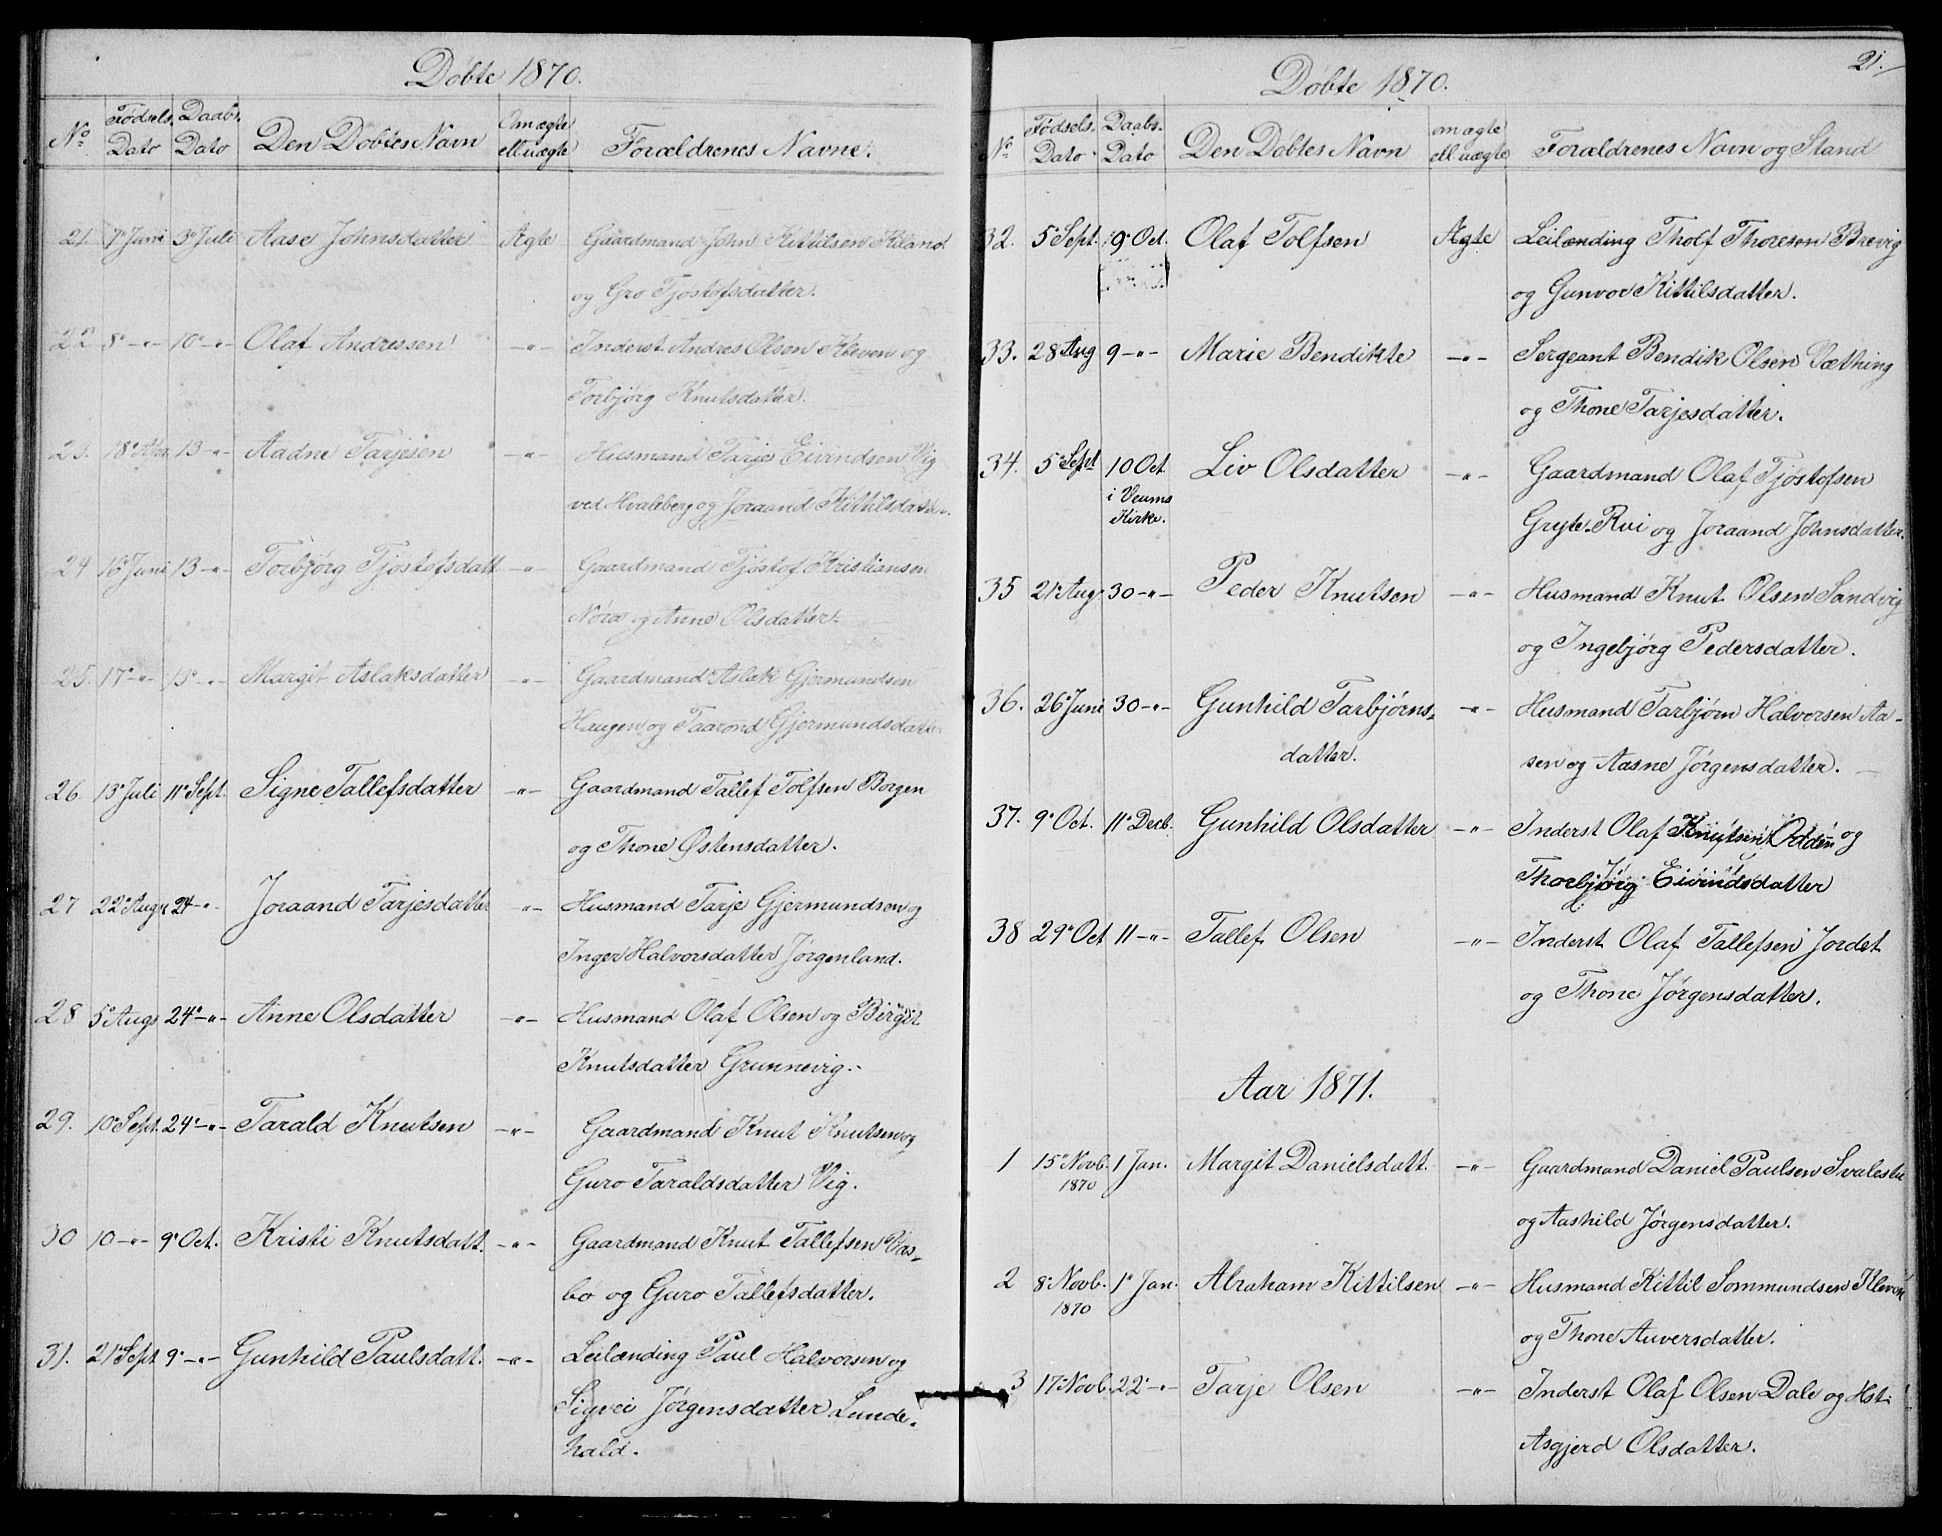 Döbte 1870.
No Fødsels. Dato Daabs. Dato Den Döbtes Navn Om ægte ell uægte Forældrenes Navne.
21. 7de Juni 3de Juli Aase Johnsdatter Ægte Gaardmand John Kittilsen Kiland
og Gro Tjøstofsdatter.
22 8de -"- 10de -"- Olaf Andressen -"- Inderst Andres Olsen Kleven og
Torbjørg Knutsdatter.
23. 18de Apr. 13 -"- Aadne Tarjesen -"- Husmand Tarje Eivindsen Vig
ved Hvaleberg og Joraand Kittilsdatter.
24 16de Juni 13 -"- Torbjørg Tjøstofsdatt -"- Gaardmand Tjöstof Kristiansen
og Anne Olsdatter.
25. 17de -"- 13de -"- Margit Aslaksdatter -"- Gaardmand Aslak Gjermundsen
Haugen og Taarond Gjermundsdatter
26. 13de Juli 11te Sept. Signe Tallefsdatter -"- Gaardmand Tallef Tolfsen Borgen
og Thone Østensdatter.
27 22de Aug 24 -"- Joraand Tarjesdatter -"- Husmand Tarje Gjermundsen og
Inger Halvorsdatter Jørgenland.
28 5te Augs 24de -"- Anne Olsdatter -"- Husmand Olaf Olsen og Birgit
Knutsdatter Grunnevig.
29. 10de Sept. 24de -"- Tarald Knutsen -"- Gaardmand Knut Knutsen og
Guro Taraldsdatter Vig.
30 10 -"- 9de Oct. Kristi Knutsdatt. -"- Gaardmand Knut Tallefsen Vas-
bø og Guro Tallefsdatter.
31. 21de Sept 9de -"- Gunhild Paulsdatt. -"- Leilænding Paul Halvorsen og
Sigvei Jørgensdatter Lunde-
hald.
21.
Döbte 1870.
No Fødsels. Dato Daabs. Dato Den Døbtes Navn om ægte ell uægte Forældrenes Navn og Stand
32. 5te Sept. 9de Oct. Olaf Tolfsen Ægte Leilænding Tholf Thoreson Brevig
og Gunvor Kittilsdatter.
33. 28 Aug 9 -"- Marie Bendikte -"- Sergeant Bendik Olsen Vætning
og Thone Tarjesdatter.
34. 5te Sept 10 Oct. Liv Olsdatter -"- Gaardmand Olaf Tjöstofsen
i Veums
Kirke.
Gryte-Rui og Joraand Johnsdatter.
35 21de Aug 30 -"- Peder Knutsen -"- Husmand Knut Olsen Sandvig
og Ingebjörg Pedersdatter.
36. 26de Juni 30 -"- Gunhild Tarbjørns- -"- Husmand Tarbjørn Halvorsen Aa-
datter. sen og Aasne Jørgensdatter.
37. 9de Oct. 11te Decb. Gunhild Olsdatter -"- Inderst Olaf Knutsen Odden og
Thorbjørg Eivindsdatter
38 29de Oct 11 -"- Tallef Olsen -"- Inderst Olaf Tallefsen Jordet
og Thone Jørgensdatter.
Aar 1871.
1 15de Novb. 1 Jan. Margit Danielsdatt. -"- Gaardmand Daniel Paulsen Svaleslie
1870
og Aashild Jørgensdatter.
2 8de Novb. 1ste Jan. Abraham Kittilsen -"- Husmand Kittil Sommundsen Kleven
1870
og Thone Auversdatter.
3 17de Novb. 22de -"- Tarje Olsen -"- Inderst Olaf Olsen Dale og Hst.
Asgjerd Olsdatter.